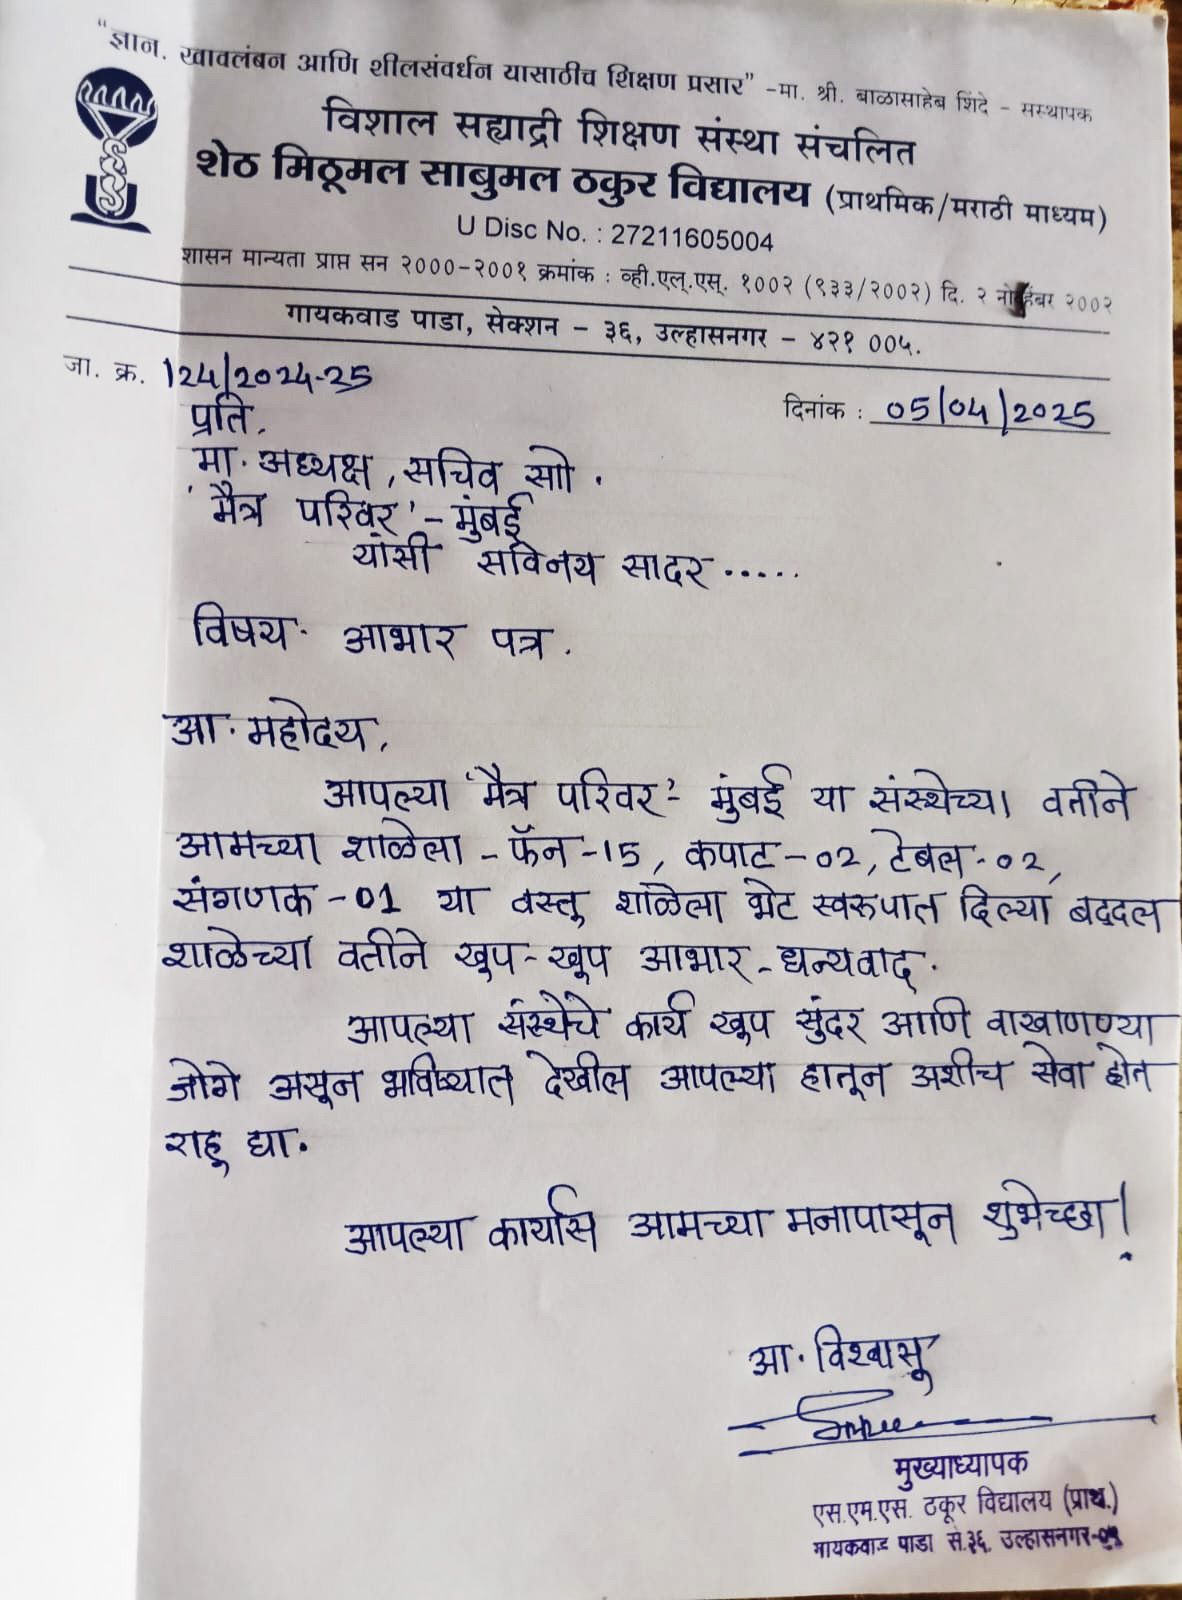 "ज्ञान. स्वावलंबन आणि शीलसंवर्धन यासाठीच शिक्षण प्रसार" -मा. श्री. बाळासाहेब शिंदे - सस्थापक
विशाल सह्याद्री शिक्षण संस्था संचलित
शेठ मिठूमल साबुमल ठकुर विद्यालय (प्राथमिक/मराठी माध्यम)
U Disc No. : 27211605004
शासन मान्यता प्राप्त सन २०००-२००१ क्रमांक : व्ही.एल्.एस्. १००२ (९३३/२००२) दि. २ नोव्हेंबर २००२
गायकवाड पाडा, सेक्शन - ३६, उल्हासनगर - ४२१ ००५.
जा. क्र. 124/2024-25
दिनांक : 05/04/2025
प्रति,
मा. अध्यक्ष, सचिव सो.
'मैत्र परिवर' - मुंबई
यांसी सविनय सादर .....
विषय. आभार पत्र.
आ. महोदय,
आपल्या 'मैत्र परिवर' - मुंबई या संस्थेच्या वतीने
आमच्या शाळेला - फॅन -15, कपाट - 02, टेबल - 02,
संगणक - 01 या वस्तु शाळेला भेट स्वरुपात दिल्या बद्दल
शाळेच्या वतीने खुप - खूप आभार - धन्यवाद.
आपल्या संस्थेचे कार्य खूप सुंदर आणि वाखाणण्या
जोगे असून भविष्यात देखील आपल्या हातून अशीच सेवा होत
राहु द्या.
आपल्या कार्यास आमच्या मनापासून शुभेच्छा!
आ. विश्वासू
मुख्याध्यापक
एस.एम.एस. ठकूर विद्यालय (प्राथ.)
गायकवाड पाडा से.३६, उल्हासनगर-०५